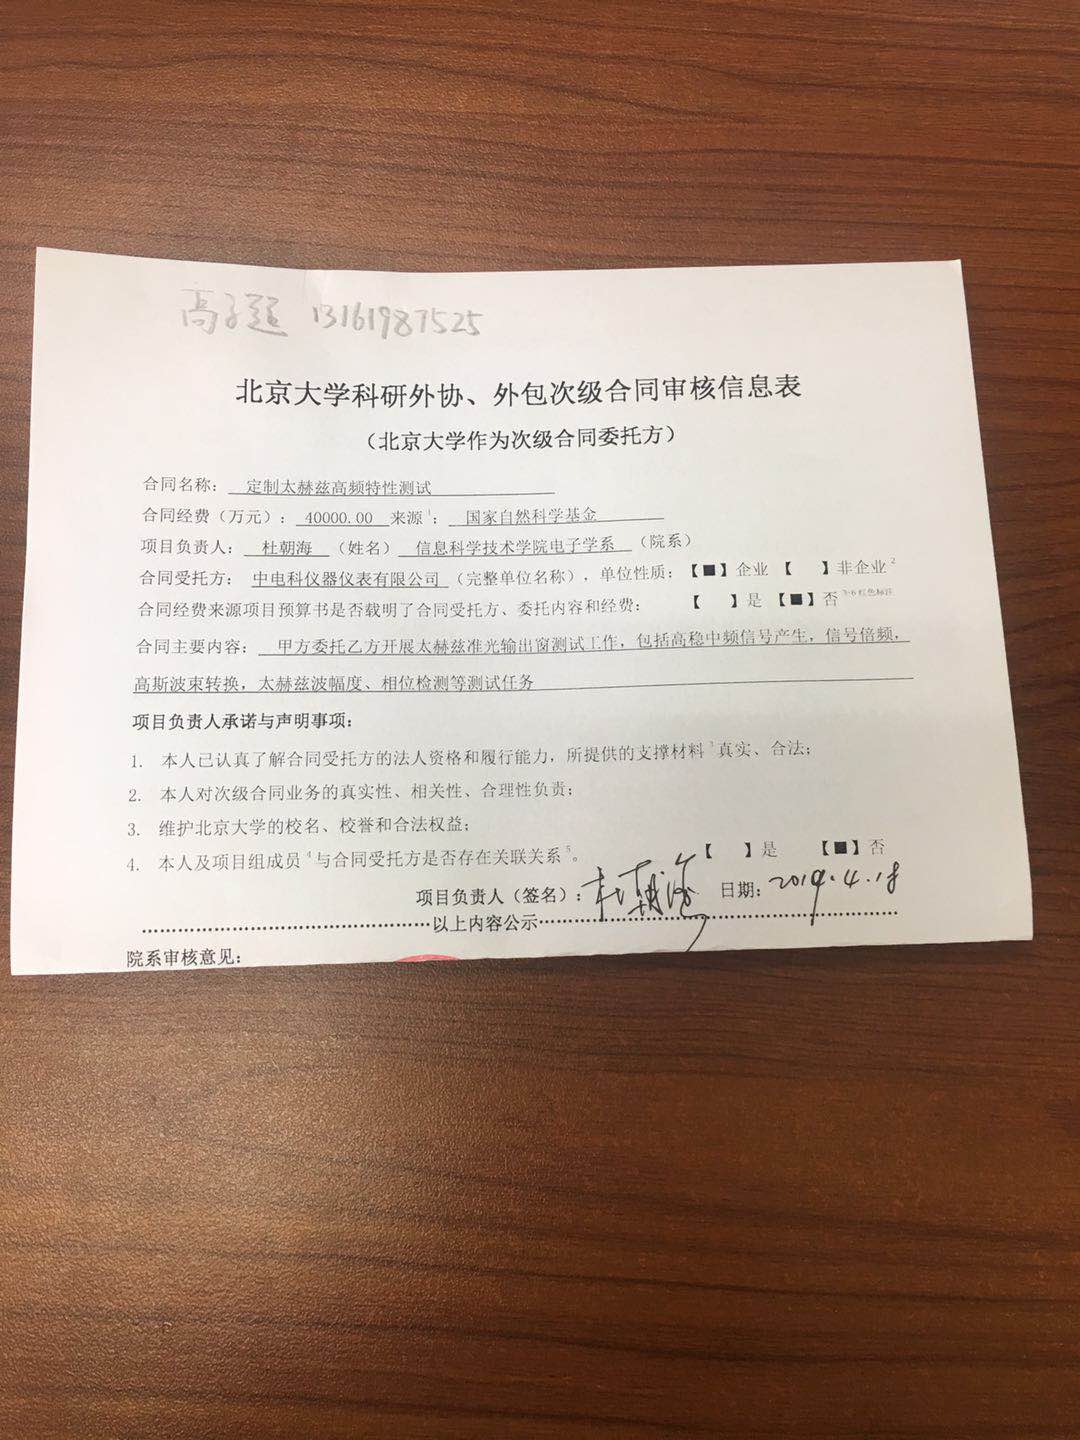 高子超 13161987525
北京大学科研外协、外包次级合同审核信息表
（北京大学作为次级合同委托方）
合同名称： 定制太赫兹高频特性测试
合同经费（万元）： 40000.00 来源1： 国家自然科学基金
项目负责人： 杜朝海 （姓名） 信息科学技术学院电子学系 （院系）
合同受托方： 中电科仪器仪表有限公司 （完整单位名称），单位性质：【■】企业 【 】非企业2
合同经费来源项目预算书是否载明了合同受托方、委托内容和经费： 【 】是 【■】否 3-6 红色标注
合同主要内容： 甲方委托乙方开展太赫兹准光输出窗测试工作，包括高稳中频信号产生，信号倍频，
高斯波束转换，太赫兹波幅度、相位检测等测试任务
项目负责人承诺与声明事项：
1. 本人已认真了解合同受托方的法人资格和履行能力，所提供的支撑材料3真实、合法；
2. 本人对次级合同业务的真实性、相关性、合理性负责；
3. 维护北京大学的校名、校誉和合法权益；
4. 本人及项目组成员4与合同受托方是否存在关联关系5。 【 】是 【■】否
项目负责人（签名）：杜朝海 日期：2019.4.18
以上内容公示
院系审核意见：